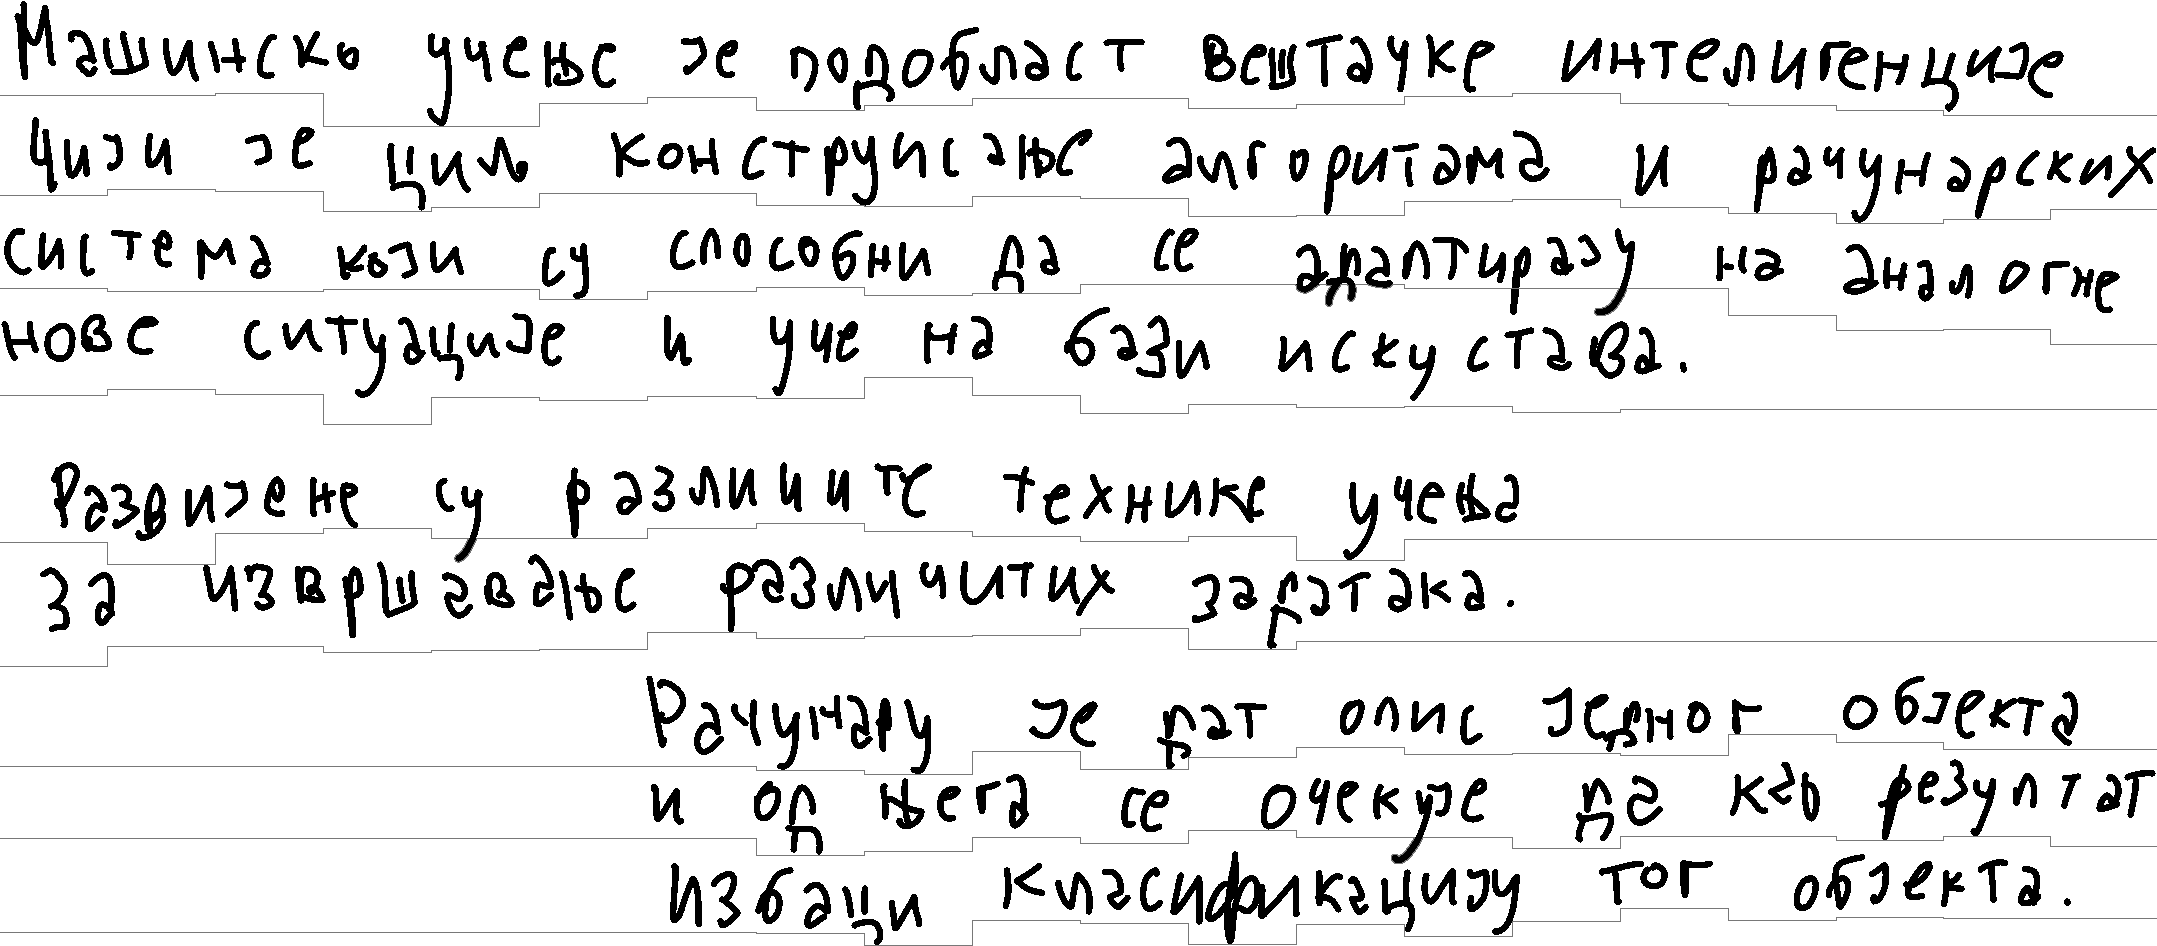 Машинско учење је подобласт вештачке интелигенције
чији је циљ конструисање алгоритама и рачунарских
система који су способни да се адаптирају на аналогне
нове ситуације и уче на бази искустава.
Развијене су различите технике учења
за извршавање различитих задатака.
Рачунару је дат опис једног објекта
и од њега се очекује да као резултат
избаци класификацију тог објекта.